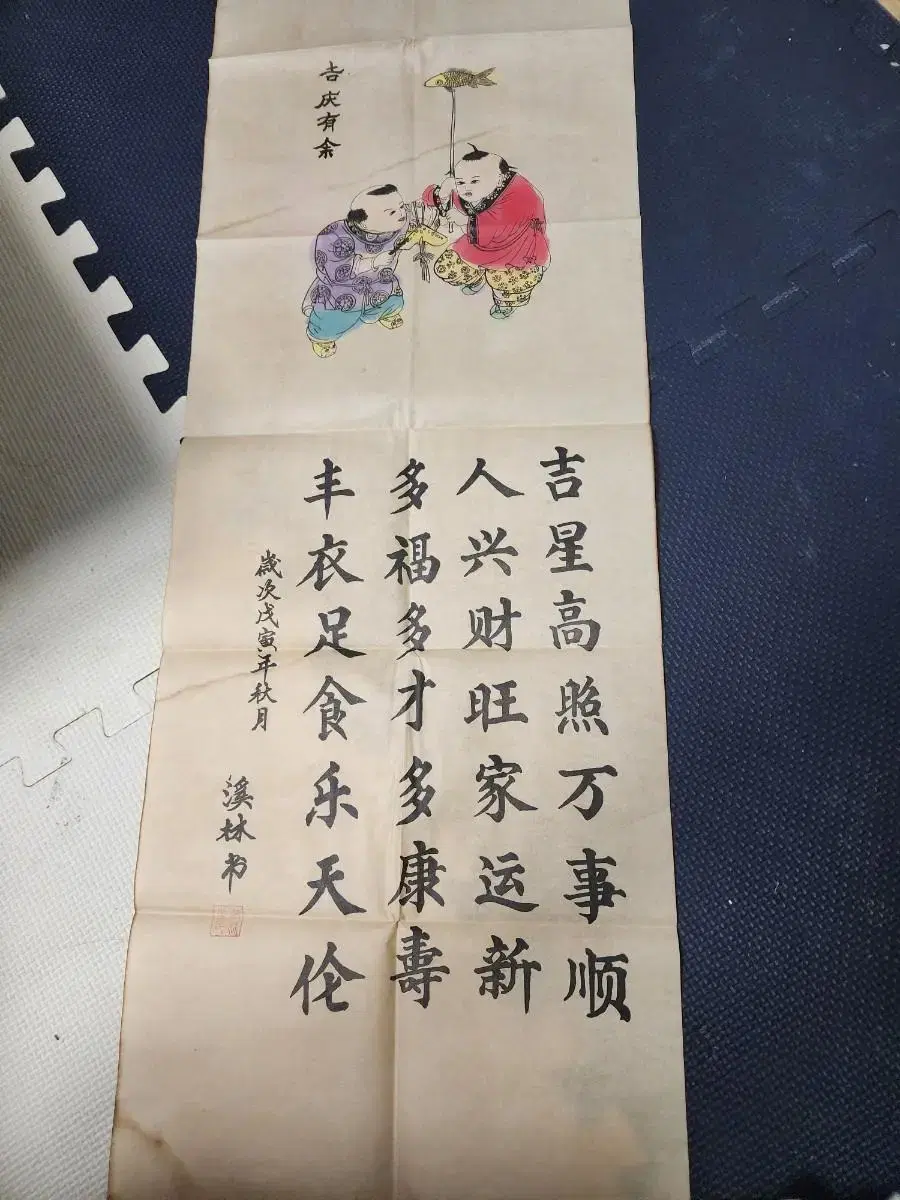 吉庆有余
吉星高照万事顺
人兴财旺家运新
多福多才多康壽
丰衣足食乐天伦
歲次戊寅年秋月
溪林书